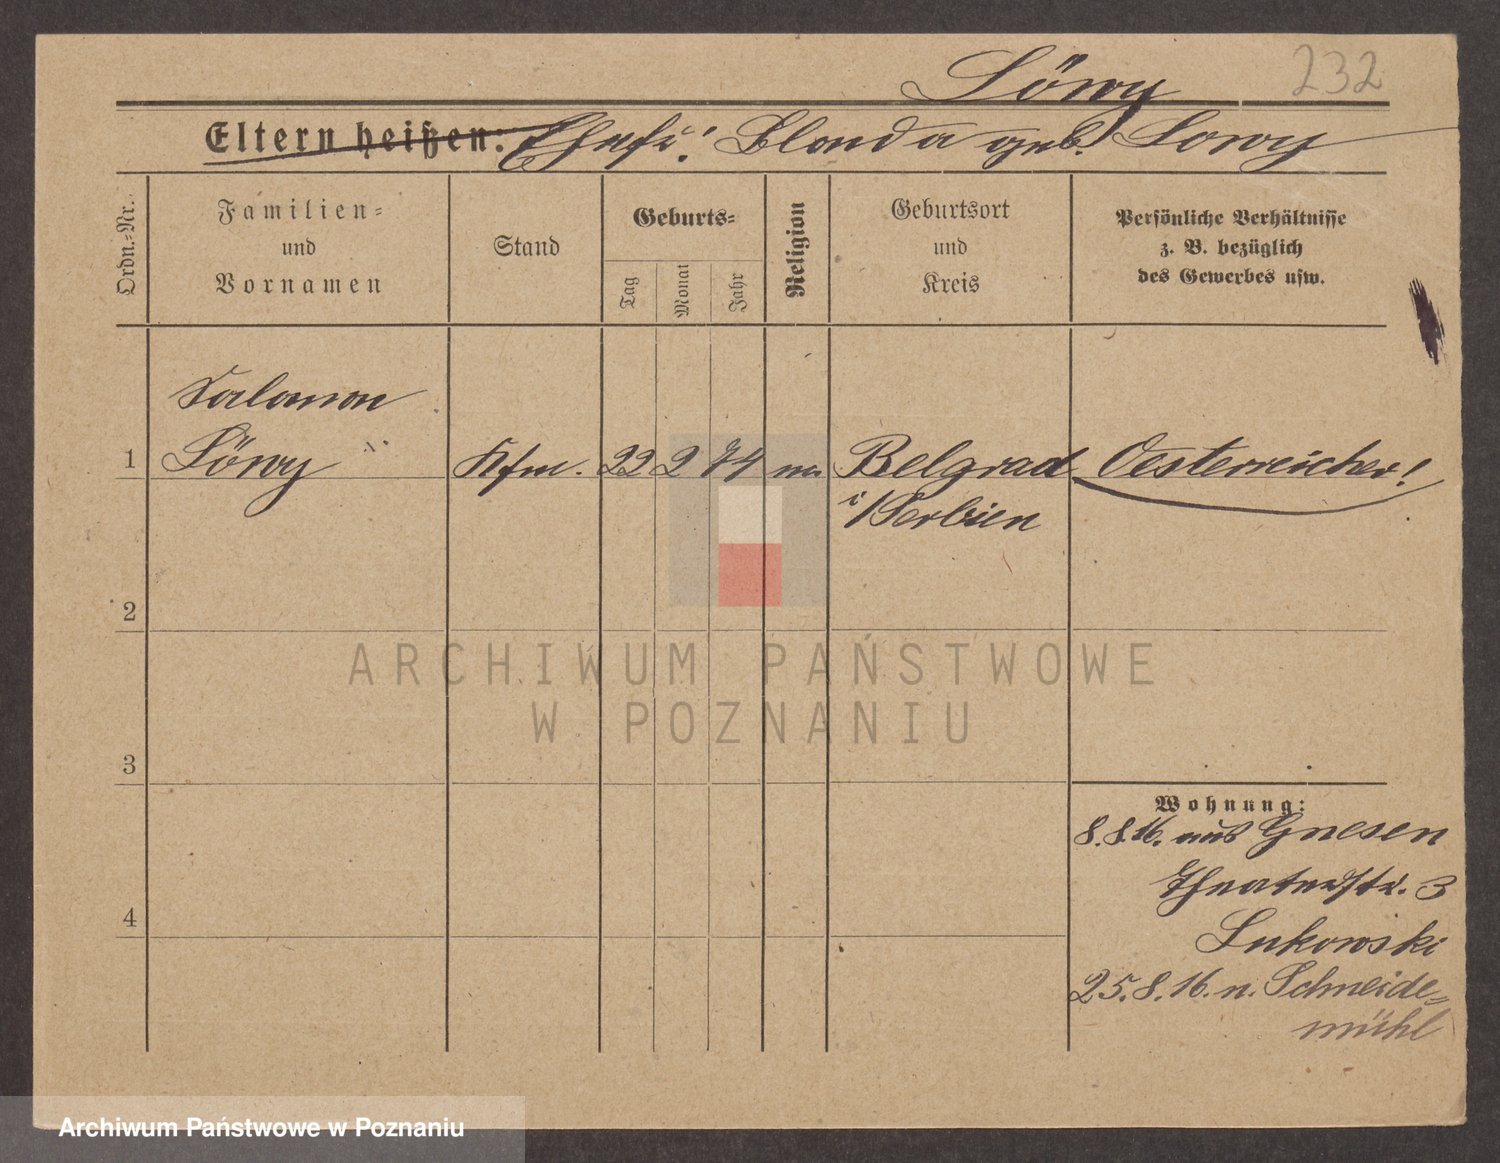 232
Löwy
Eltern heißen: Ehefr: Blonda geb. Löwy
Ordn.-Nr.
Familien-
und
Vornamen
Stand
Geburts-
Tag
Monat
Jahr
Religion
Geburtsort
und
Kreis
Persönliche Verhältnisse
z. B. bezüglich
des Gewerbes usw.
Salomon
1 Löwy Kfm. 22 2 74 Belgrad Oesterreicher!
i/Serbien
2
3
4
Wohnung:
8.8.16. aus Gnesen
Theaterstr. 3
Lukowski
25.8.16. n. Schneide-
mühl
ARCHIWUM PAŃSTWOWE
W POZNANIU
Archiwum Państwowe w Poznaniu